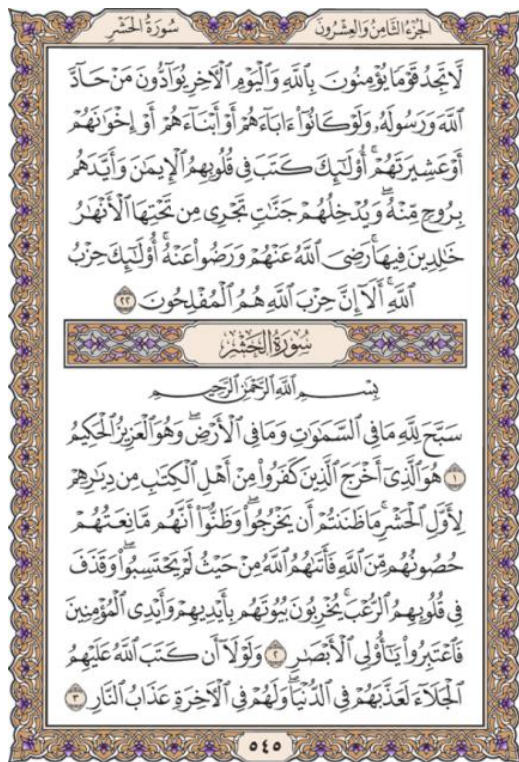 الجُزْءُ الثَّامِنُ وَالعِشْرُونَ سُورَةُ الحَشْرِ
لَّا تَجِدُ قَوْمًا يُؤْمِنُونَ بِاللَّهِ وَالْيَوْمِ الْآخِرِ يُوَادُّونَ مَنْ حَادَّ
اللَّهَ وَرَسُولَهُۥ وَلَوْ كَانُوٓا۟ ءَابَآءَهُمْ أَوْ أَبْنَآءَهُمْ أَوْ إِخْوَٰنَهُمْ
أَوْ عَشِيرَتَهُمْ ۚ أُو۟لَٰٓئِكَ كَتَبَ فِى قُلُوبِهِمُ الْإِيمَٰنَ وَأَيَّدَهُم
بِرُوحٍ مِّنْهُ ۖ وَيُدْخِلُهُمْ جَنَّٰتٍ تَجْرِى مِن تَحْتِهَا الْأَنْهَٰرُ
خَٰلِدِينَ فِيهَا ۚ رَضِىَ اللَّهُ عَنْهُمْ وَرَضُوا۟ عَنْهُ ۚ أُو۟لَٰٓئِكَ حِزْبُ
اللَّهِ ۚ أَلَآ إِنَّ حِزْبَ اللَّهِ هُمُ الْمُفْلِحُونَ ٢٢
سُورَةُ الحَشْرِ
بِسْمِ اللَّهِ الرَّحْمَٰنِ الرَّحِيمِ
سَبَّحَ لِلَّهِ مَا فِى السَّمَٰوَٰتِ وَمَا فِى الْأَرْضِ ۖ وَهُوَ الْعَزِيزُ الْحَكِيمُ
١ هُوَ الَّذِىٓ أَخْرَجَ الَّذِينَ كَفَرُوا۟ مِنْ أَهْلِ الْكِتَٰبِ مِن دِيَٰرِهِمْ
لِأَوَّلِ الْحَشْرِ ۚ مَا ظَنَنتُمْ أَن يَخْرُجُوا۟ ۖ وَظَنُّوٓا۟ أَنَّهُم مَّانِعَتُهُمْ
حُصُونُهُم مِّنَ اللَّهِ فَأَتَىٰهُمُ اللَّهُ مِنْ حَيْثُ لَمْ يَحْتَسِبُوا۟ ۖ وَقَذَفَ
فِى قُلُوبِهِمُ الرُّعْبَ ۚ يُخْرِبُونَ بُيُوتَهُم بِأَيْدِيهِمْ وَأَيْدِى الْمُؤْمِنِينَ
فَاعْتَبِرُوا۟ يَٰٓأُو۟لِى الْأَبْصَٰرِ ٢ وَلَوْلَآ أَن كَتَبَ اللَّهُ عَلَيْهِمُ
الْجَلَآءَ لَعَذَّبَهُمْ فِى الدُّنْيَا ۖ وَلَهُمْ فِى الْآخِرَةِ عَذَابُ النَّارِ ٣
٥٤٥